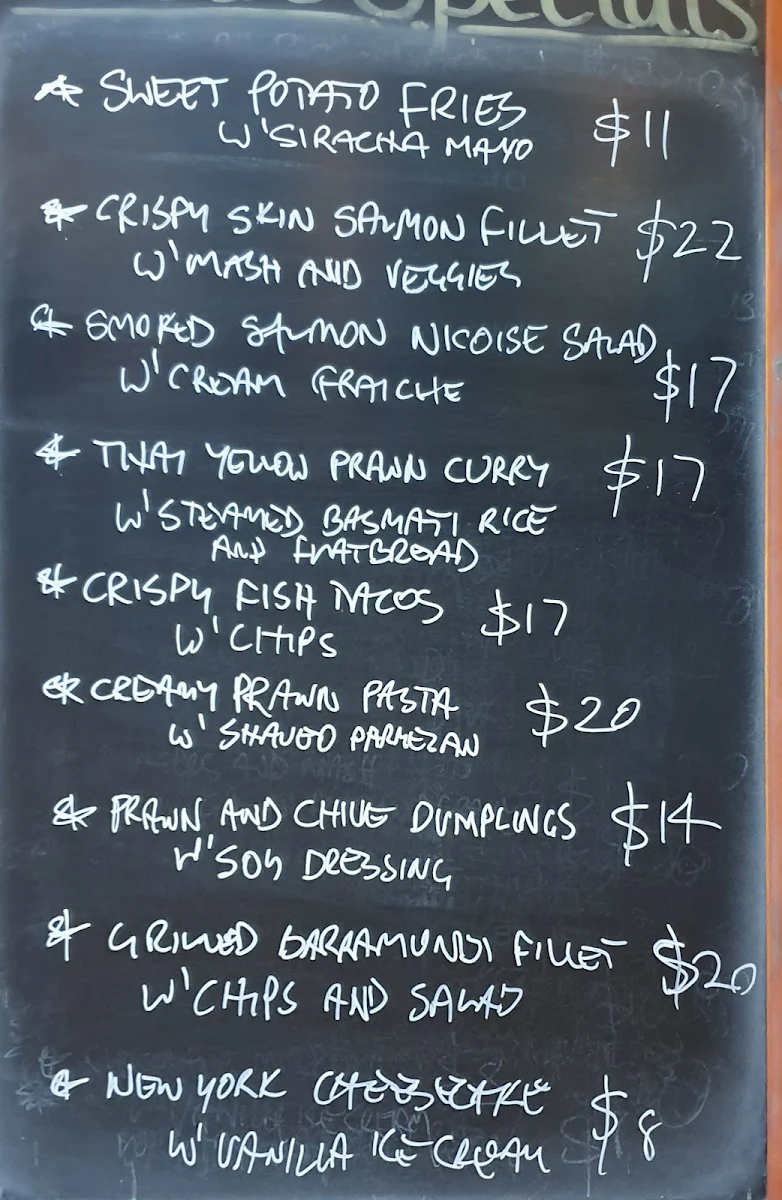 Specials
* SWEET POTATO FRIES $11
W'SIRACHA MAYO
* CRISPY SKIN SALMON FILLET $22
W'MASH AND VEGGIES
* SMOKED SALMON NICOISE SALAD
W'CREAM FRAICHE $17
* THAI YELLOW PRAWN CURRY $17
W'STEAMED BASMATI RICE
AND FLATBREAD
* CRISPY FISH TACOS $17
W'CHIPS
* CREAMY PRAWN PASTA $20
W'SHAVED PARMEZAN
* PRAWN AND CHIVE DUMPLINGS $14
W'SOY DRESSING
* GRILLED BARRAMUNDI FILLET $20
W'CHIPS AND SALAD
* NEW YORK CHEESECAKE $8
W'VANILLA ICE CREAM